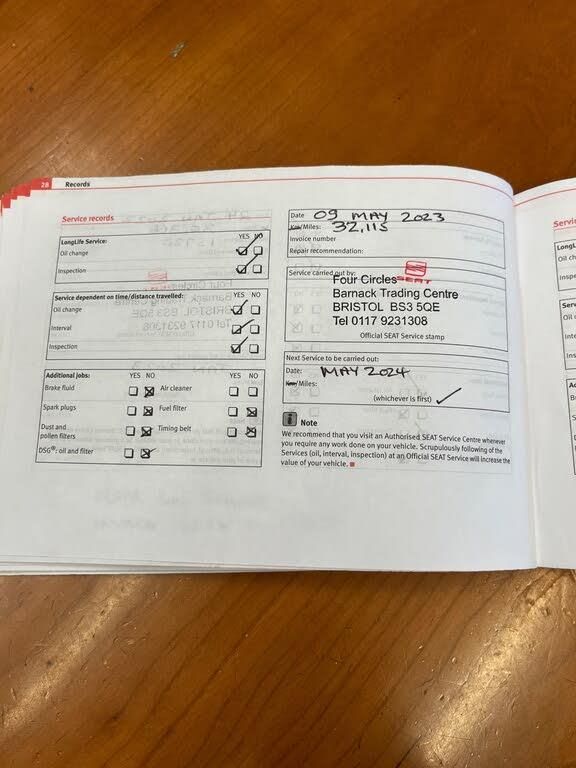 28 Records
Service records
YES NO
LongLife Service:
Oil change
Inspection
YES NO
Service dependent on time/distance travelled:
Oil change
Interval
Inspection
Additional jobs: YES NO YES NO
Brake fluid Air cleaner
Spark plugs Fuel filter
Dust and pollen filters Timing belt
DSG®: oil and filter
Date 09 MAY 2023
Km/Miles: 32,115
Invoice number
Repair recommendation:
Service carried out by:
SEAT
Four Circles
Barnack Trading Centre
BRISTOL BS3 5QE
Tel 0117 9231308
Official SEAT Service stamp
Next Service to be carried out:
Date: MAY 2024
Km/Miles:
(whichever is first)
i Note
We recommend that you visit an Authorised SEAT Service Centre whenever
you require any work done on your vehicle. Scrupulously following of the
Services (oil, interval, inspection) at an Official SEAT Service will increase the
value of your vehicle.